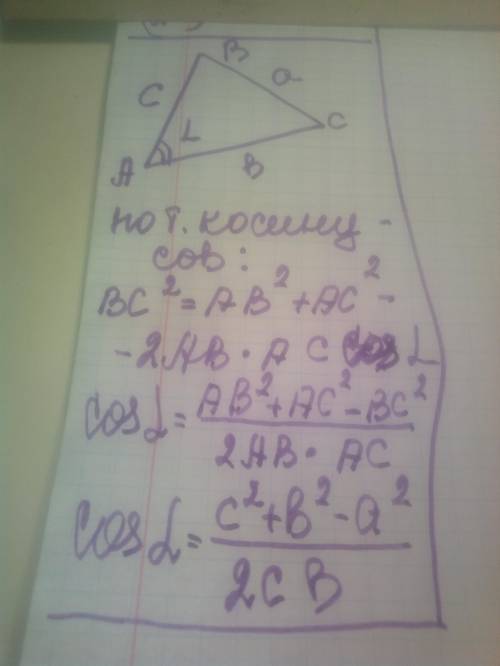 B
a
C
L
C
A
B
по т. косину-
сов:
BC² = AB² + AC² -
- 2AB · AC cos L
cos L = AB² + AC² - BC² / 2AB · AC
cos L = C² + B² - a² / 2CB